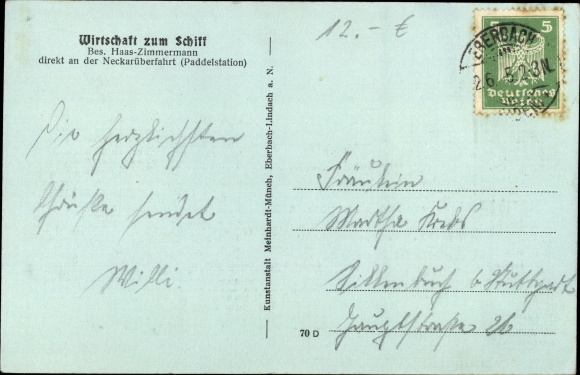 Wirtschaft zum Schiff
Bes. Haas-Zimmermann
direkt an der Neckarüberfahrt (Paddelstation)
12.- €
EBERBACH
5
Deutsches
Reich
Die herzlichsten
Grüße sendet
Willi.
Kunstanstalt Meinhardt-Münch, Eberbach-Lindach a. N.
70 D
Fräulein
Martha Krebs
Sillenbuch b/Stuttgart
Hauptstraße 26